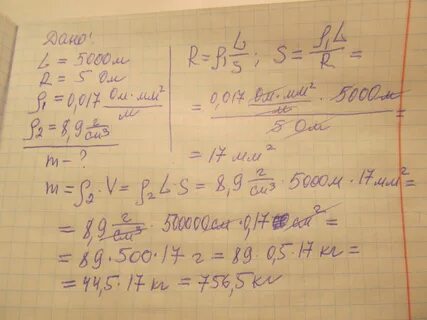 Дано:
L = 5000м
R = 5 Ом
ρ₁ = 0,017 Ом·мм²/м
ρ₂ = 8,9 г/см³
m - ?
R = ρ₁ L/S ; S = ρ₁L/R =
= 0,017 Ом·мм²/м · 5000м / 5 Ом =
= 17 мм²
m = ρ₂·V = ρ₂ L·S = 8,9 г/см³ · 5000м · 17 мм² =
= 8,9 г/см³ · 500000см · 0,17 см² =
= 89·500·17 г = 89·0,5·17 кг =
= 44,5·17 кг = 756,5 кг